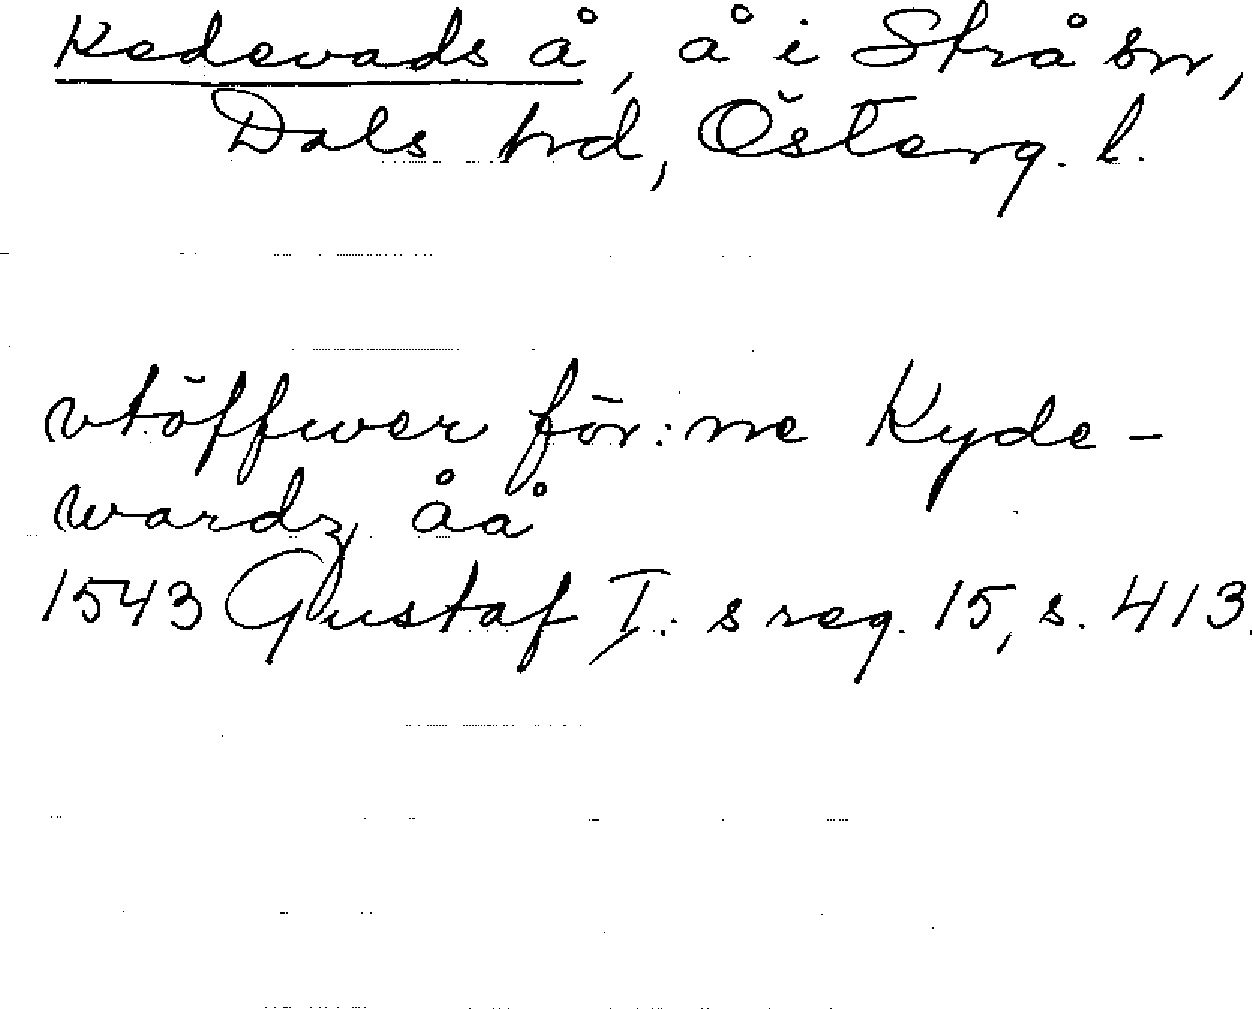 Kedevads å, å i Strå sn,
Dals hd, Österg. l.
vtöffwer för:ne Kyde-
wardz åå
1543 Gustaf I:s reg. 15, s. 413.